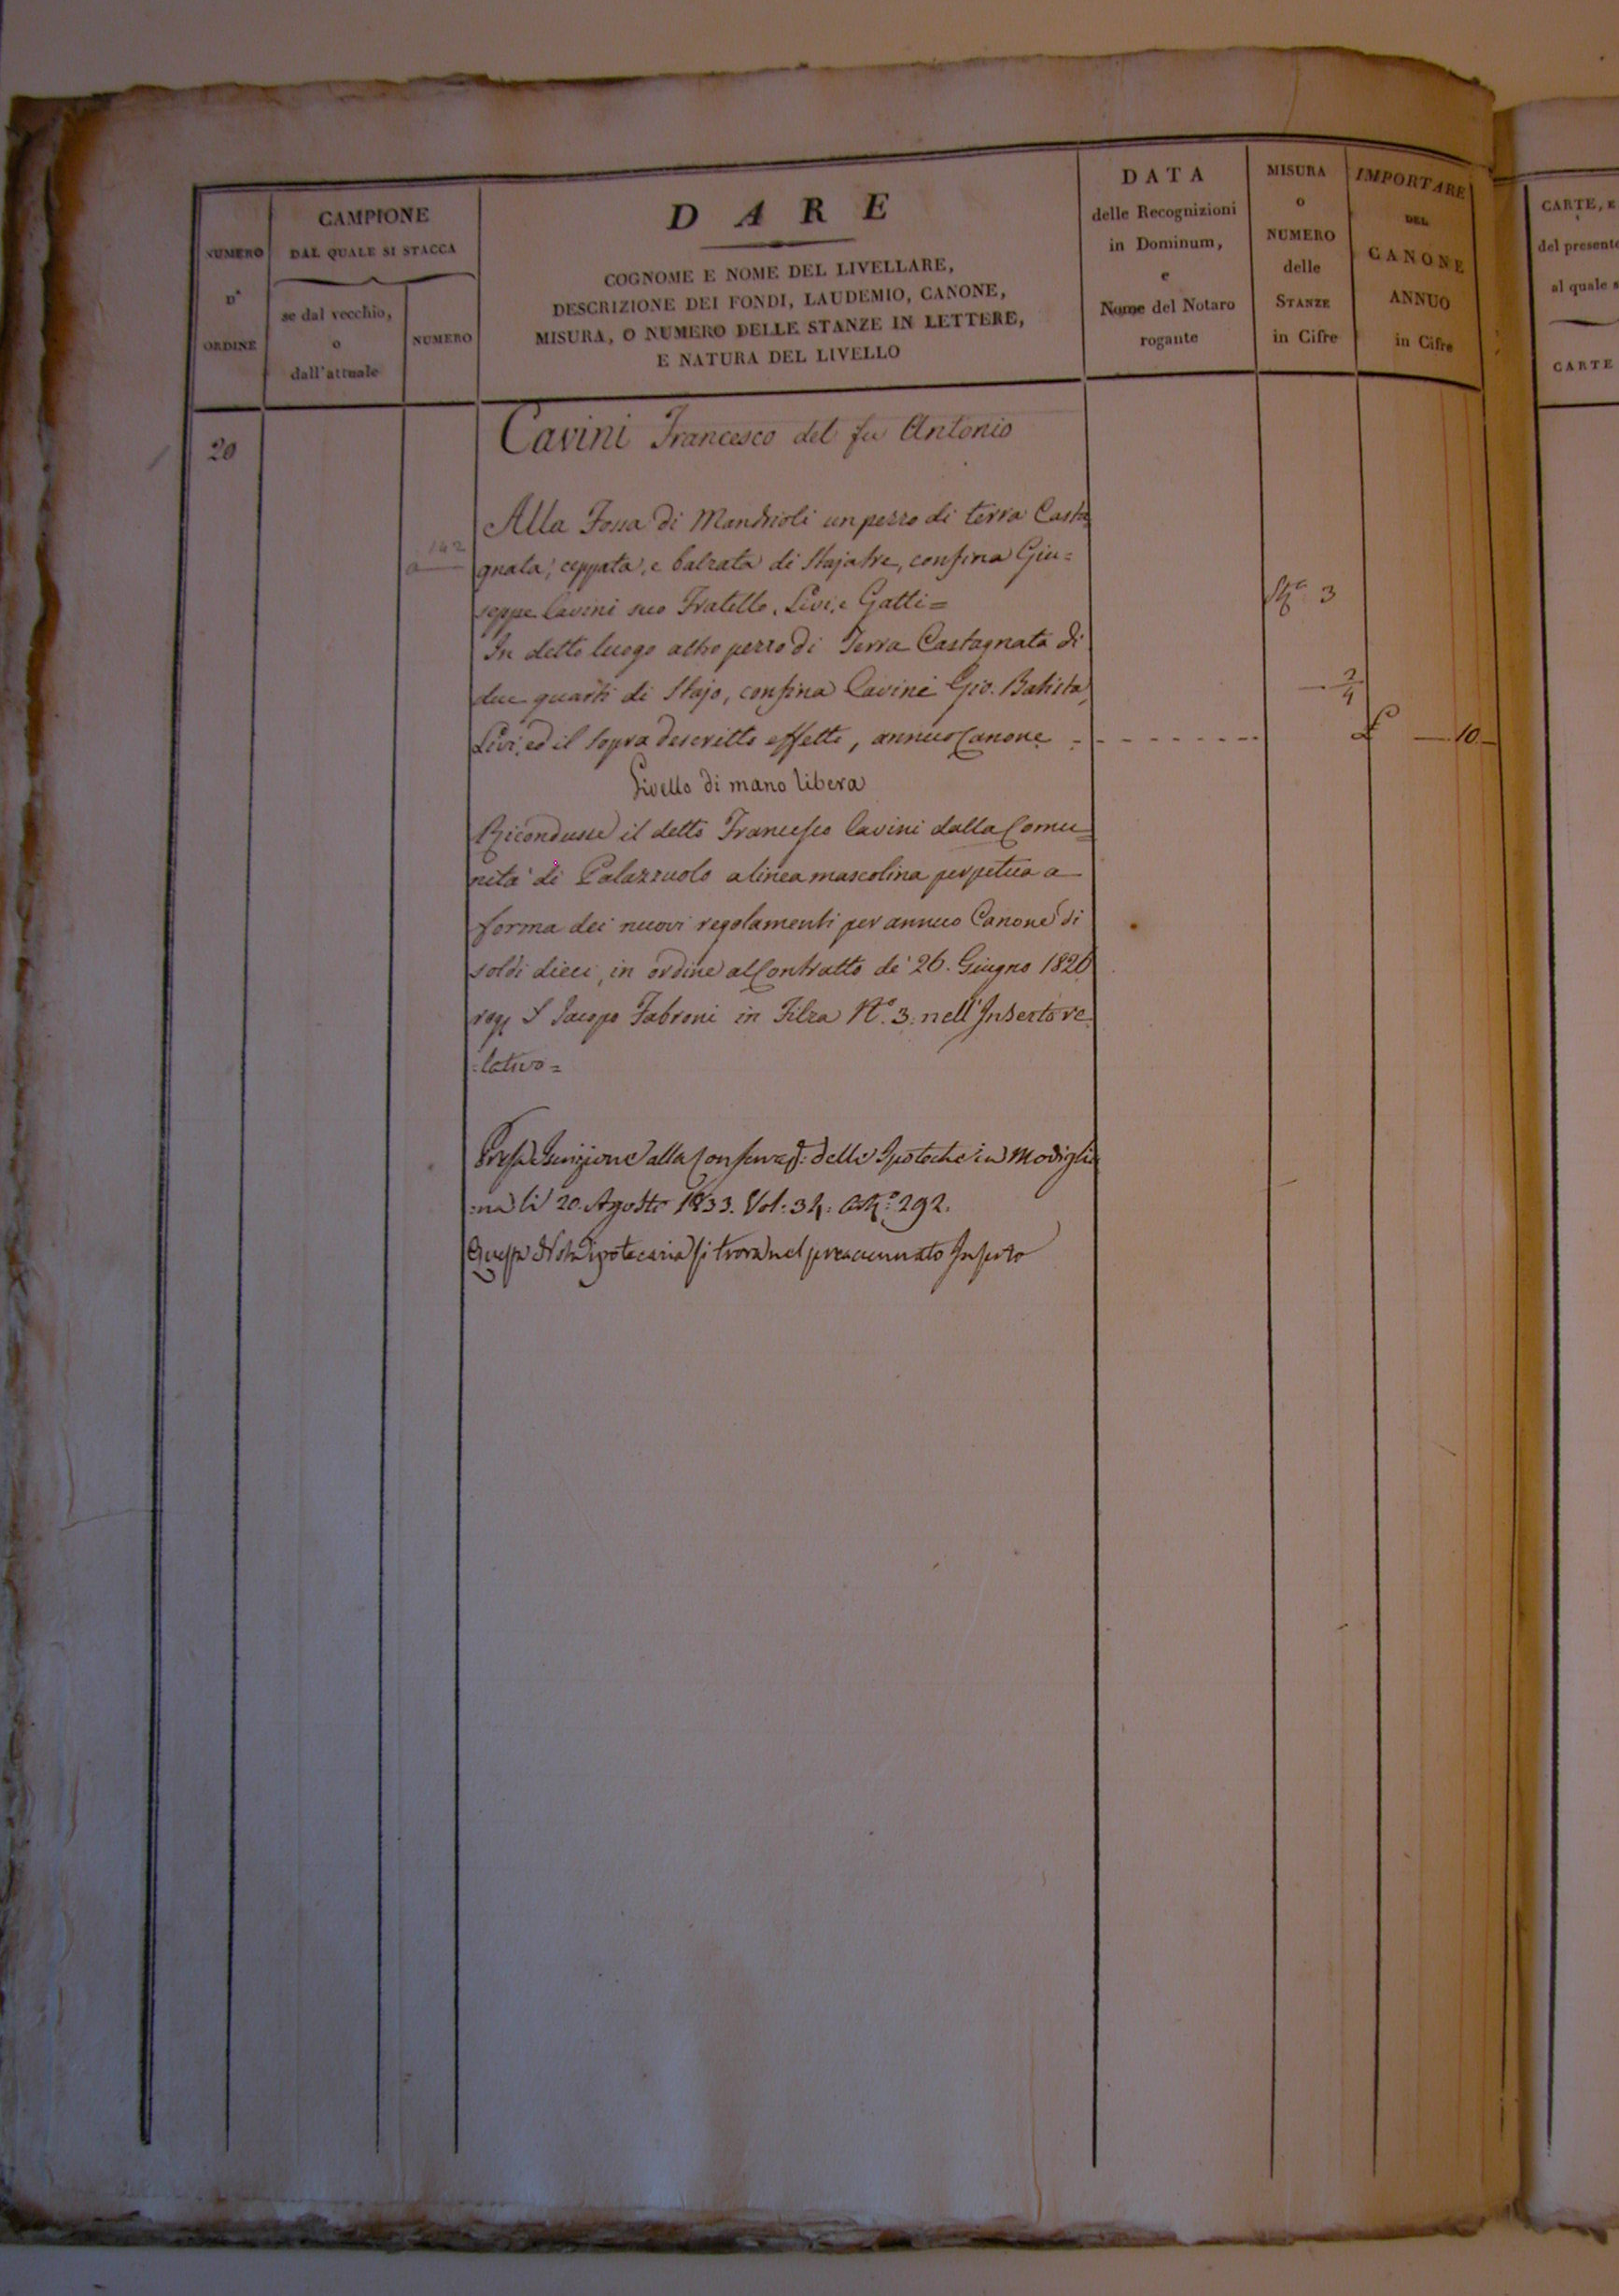 NUMERO
D'
ORDINE
CAMPIONE
DAL QUALE SI STACCA
se dal vecchio,
o
dall'attuale
NUMERO
DARE
COGNOME E NOME DEL LIVELLARE,
DESCRIZIONE DEI FONDI, LAUDEMIO, CANONE,
MISURA, O NUMERO DELLE STANZE IN LETTERE,
E NATURA DEL LIVELLO
DATA
delle Recognizioni
in Dominum,
e
Nome del Notaro
rogante
MISURA
o
NUMERO
delle
STANZE
in Cifre
IMPORTARE
DEL
CANONE
ANNUO
in Cifre
CARTE, E
del presente
al quale s
CARTE
20
Cavini Francesco del fu Antonio
Alla Fossa di Mandrioli un pezzo di terra Casta
142
gnata, ceppata, e balzata di Staja tre, confina Giu=
seppe Cavini suo Fratello, Livi, e Gatti=
3
In detto luogo altro pezzo di Terra Castagnata di
due quarti di Stajo, confina Cavini Gio. Batista,
2/4
Livi, ed il sopra descritto effetto, annuo Canone - - - - - - - - £ — 10 —
Livello di mano libera
Ricondusse il detto Francesco Cavini dalla Comu=
nità di Palazzuolo a linea mascolina perpetua a
forma dei nuovi regolamenti per annuo Canone di
soldi dieci, in ordine al Contratto de' 26. Giugno 1826
Jacopo Fabroni in Filza N.° 3. nell'Inserto re
:lativo=
Presa Iscrizione alla Conservaz: delle Ipoteche in Modiglia
:na li 20. Agosto 1833. Vol: 34: 292.
Questa Nota ipotecaria si trova nel preaccennato Inserto